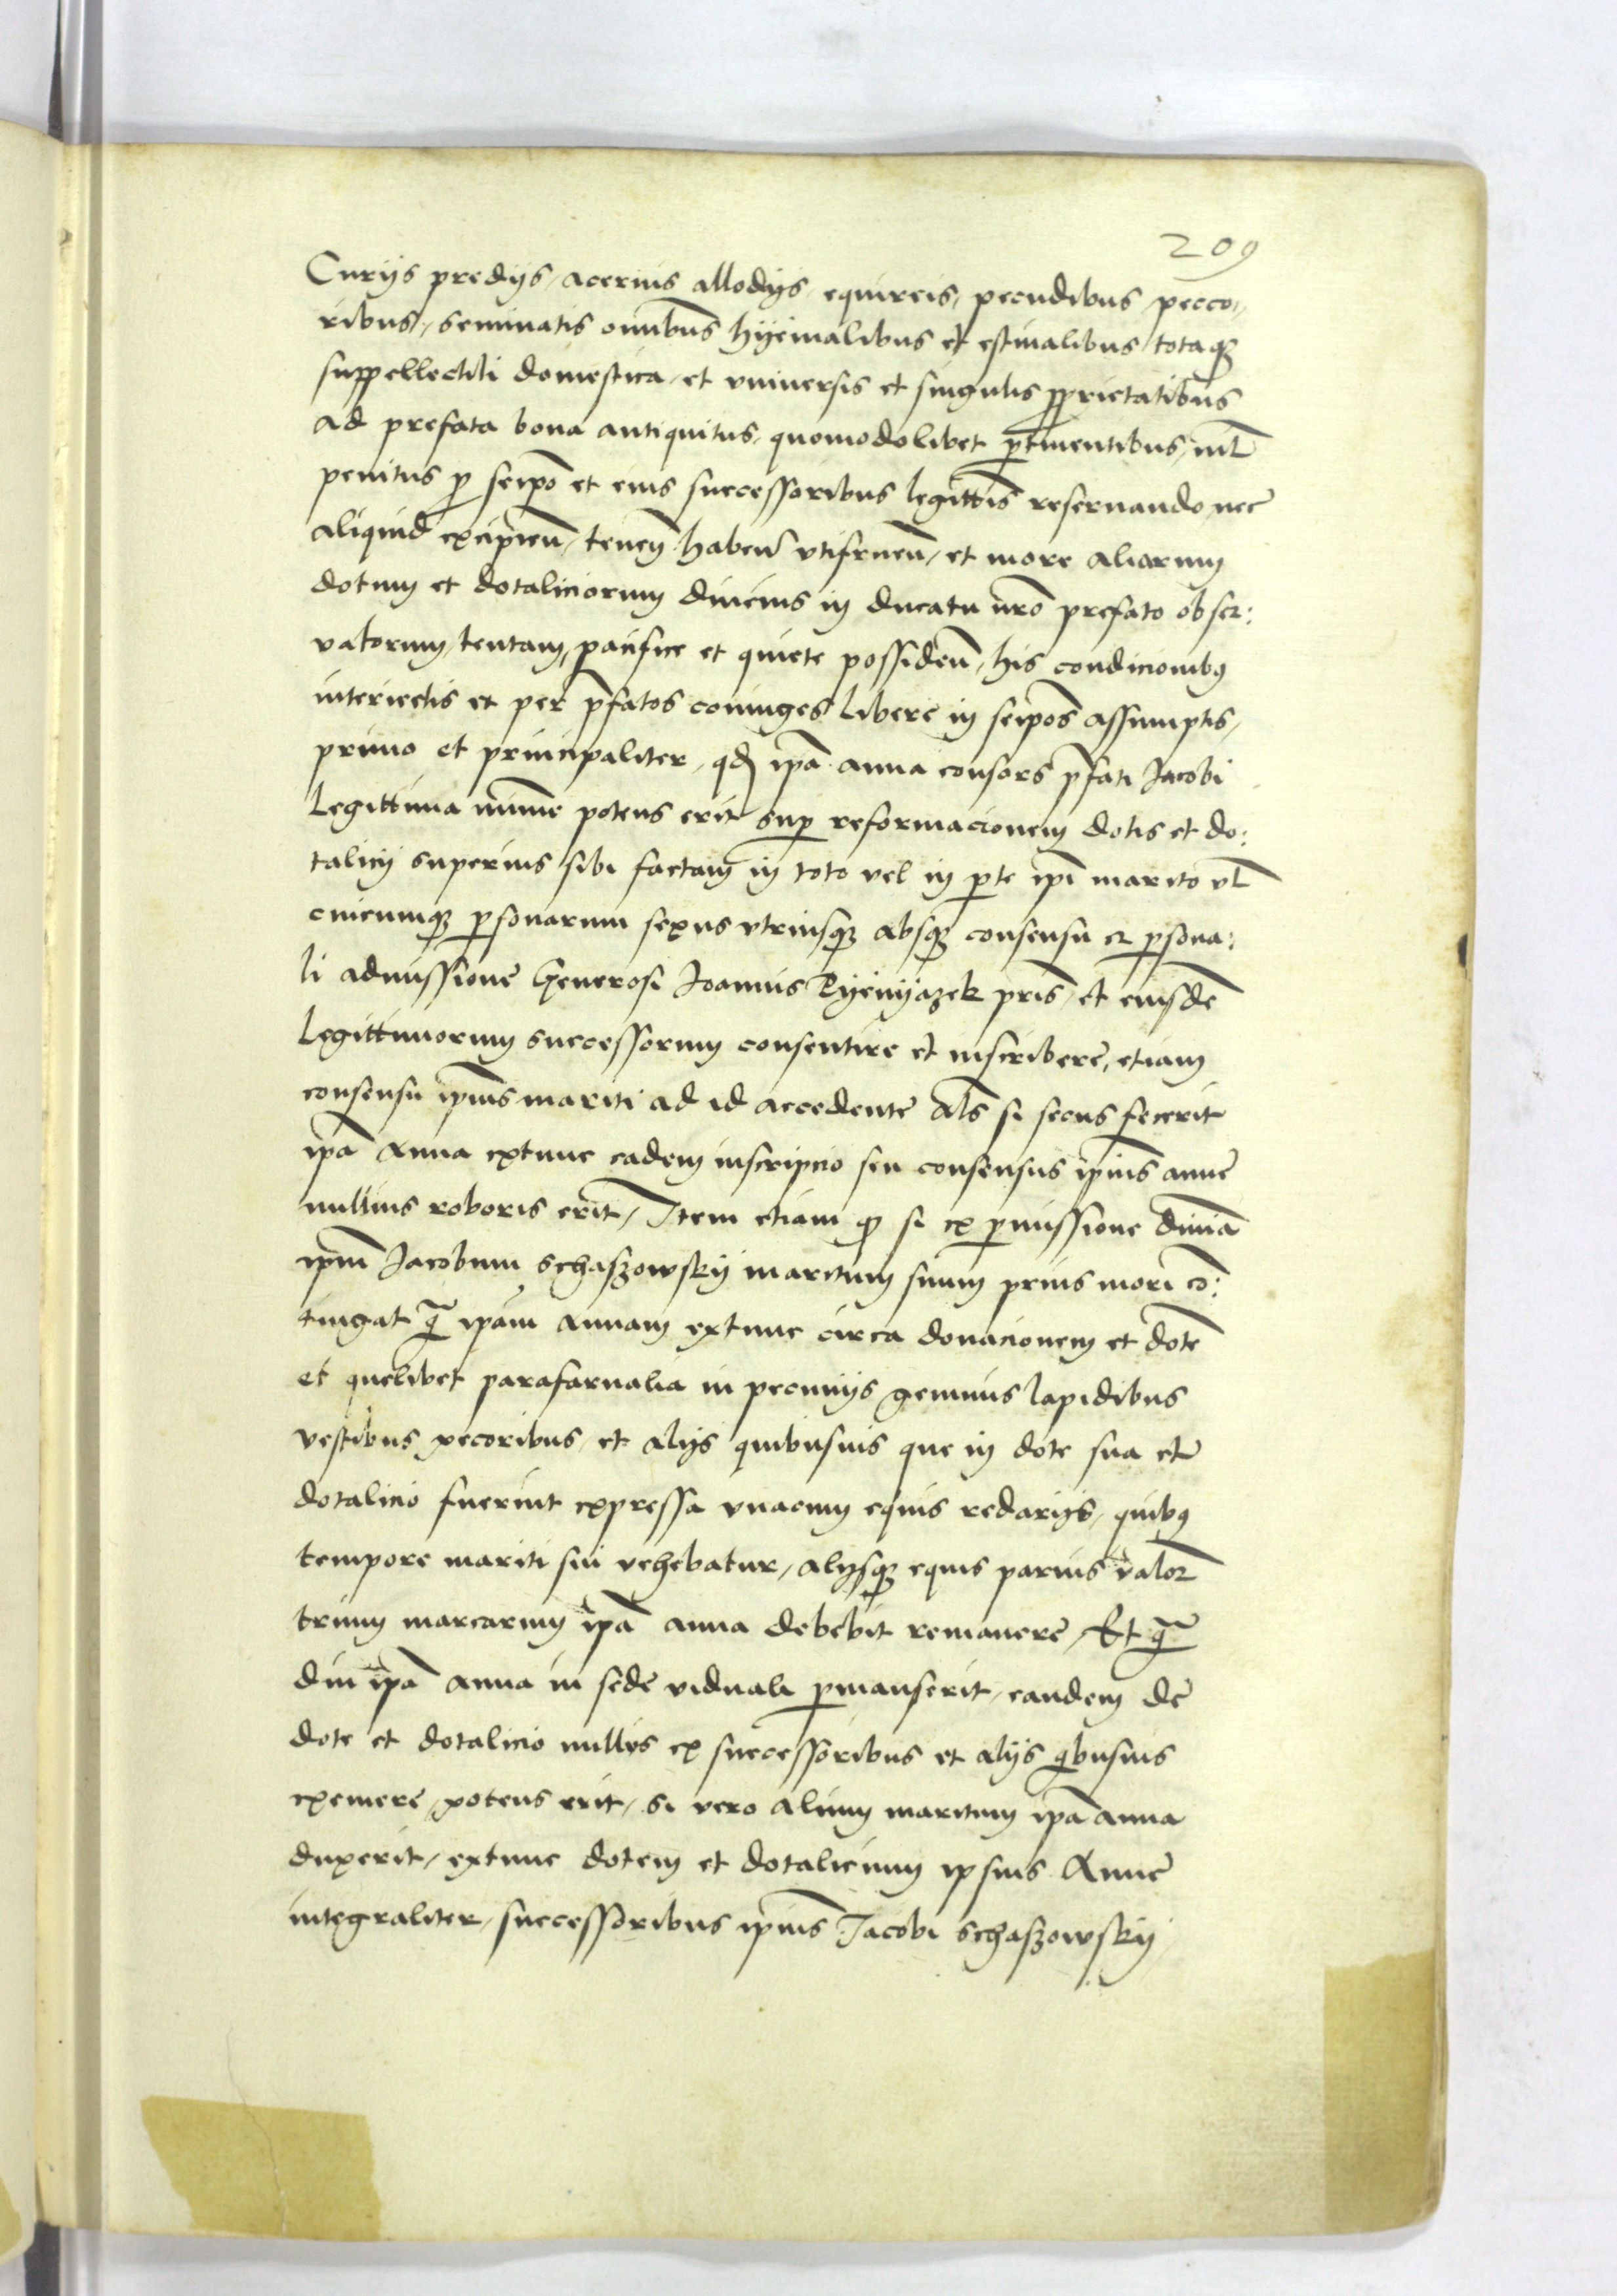 209
Curijs predijs, acervis allodijs equireis, pecudibus pecco-
ribus, seminatis omnibus hÿemalibus et estivalibus totaqʒ
suppellectili domestica, et vniversis et singulis pprietatibus
ad prefata bona antiquitus, quomodolibet ptinentibus, nil
penitus p seipō et eius successoribus legittīs reservando nec
aliquid excipieñ, teneñ habeñ vtifrueñ, et more aliarum
dotum et dotaliciorum divcius in ducatu nr̄o prefato obser:
vatorum, tentam, pacifice et quiete possideñ, his condicionibꝰ
interiectis et per pfatos coniuges libere in seipōs assumptis,
primo et principaliter, qđ ipā anna consors pfati Jacobi
legittima minime potens erit sup reformacionem dotis et do:
talicij superius sibi factam in toto vel in pte ipī marito vl̄
cuicumqʒ psonarum sexus vtriusqʒ absqʒ consensu et psona:
li admissione Generosi Joannis Pÿenÿazek pr̄is, et eiusdē
legittimorum successorum consentire et inscribere, etiam
consensu ipīus mariti ad id accedente als̄ si secus fecerit
ipā Anna extunc eadem inscripcio seu consensus ipīus anne
nullius roboris erit, Item etiam ꝙ si ex pmissione divinā
ipm̄ Jacobum Schaszowskij maritum suum prius mori cō:
tingat q̄ ipam̄ annam extunc circa donacionem et dotē
et quelibet parafarnalia in pecunijs gemmis lapidibus
vestibus pecoribus, et alijs quibusuis que in dote sua et
dotalicio fuerint expressa vnacum equis redarijs, quibꝰ
tempore mariti sui vehebatur, alijsqʒ equis parvis valor̄
trium marcarum ipā anna debebit remanere, Et q̄
diu ipā anna in sede viduali pmanserit, eandem de
dote et dotalicio nullus ex successoribus et alijs qbusuis
exemere, potens erit, si vero alium maritum ipā anna
duxerit, extunc dotem et dotalicium ipsius Anne
integraliter, successoribus ipīus Jacobi Schaszowskij